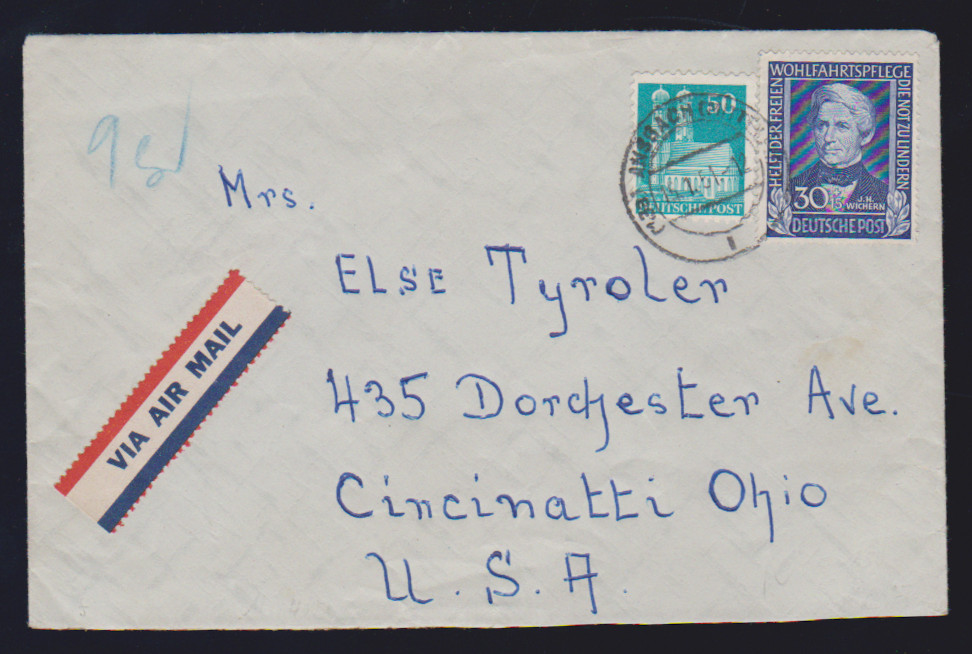 50
DEUTSCHE POST
WOHLFAHRTSPFLEGE
HELFT DER FREIEN
DIE NOT ZU LINDERN
30 +15
J.H.
WICHERN
DEUTSCHE POST
Mrs.
ELSE Tyroler
VIA AIR MAIL
435 Dorchester Ave.
Cincinatti Ohio
U. S. A.